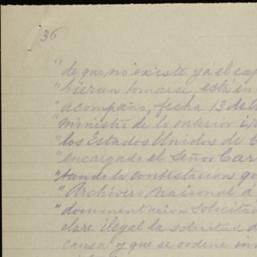 36
"de que no existe ya el cap
"bieran tomarse, está in
"acompaño, fecha 13 de
"ministro de lo interior
"los Estados Unidos de
"encargado el Señor Car
"tando la contestacion
"Archivero Nacional a
"documentacion solicita
"clare ilegal la solicitud d
"causa y que se ordene in